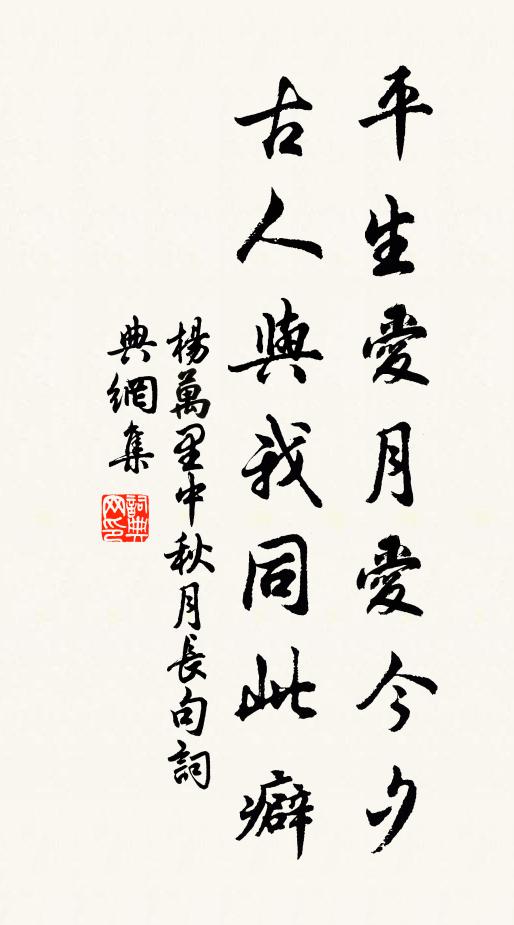 平生愛月愛今夕
古人與我同此癖
楊萬里中秋月長句詞
典網集
詞典網印